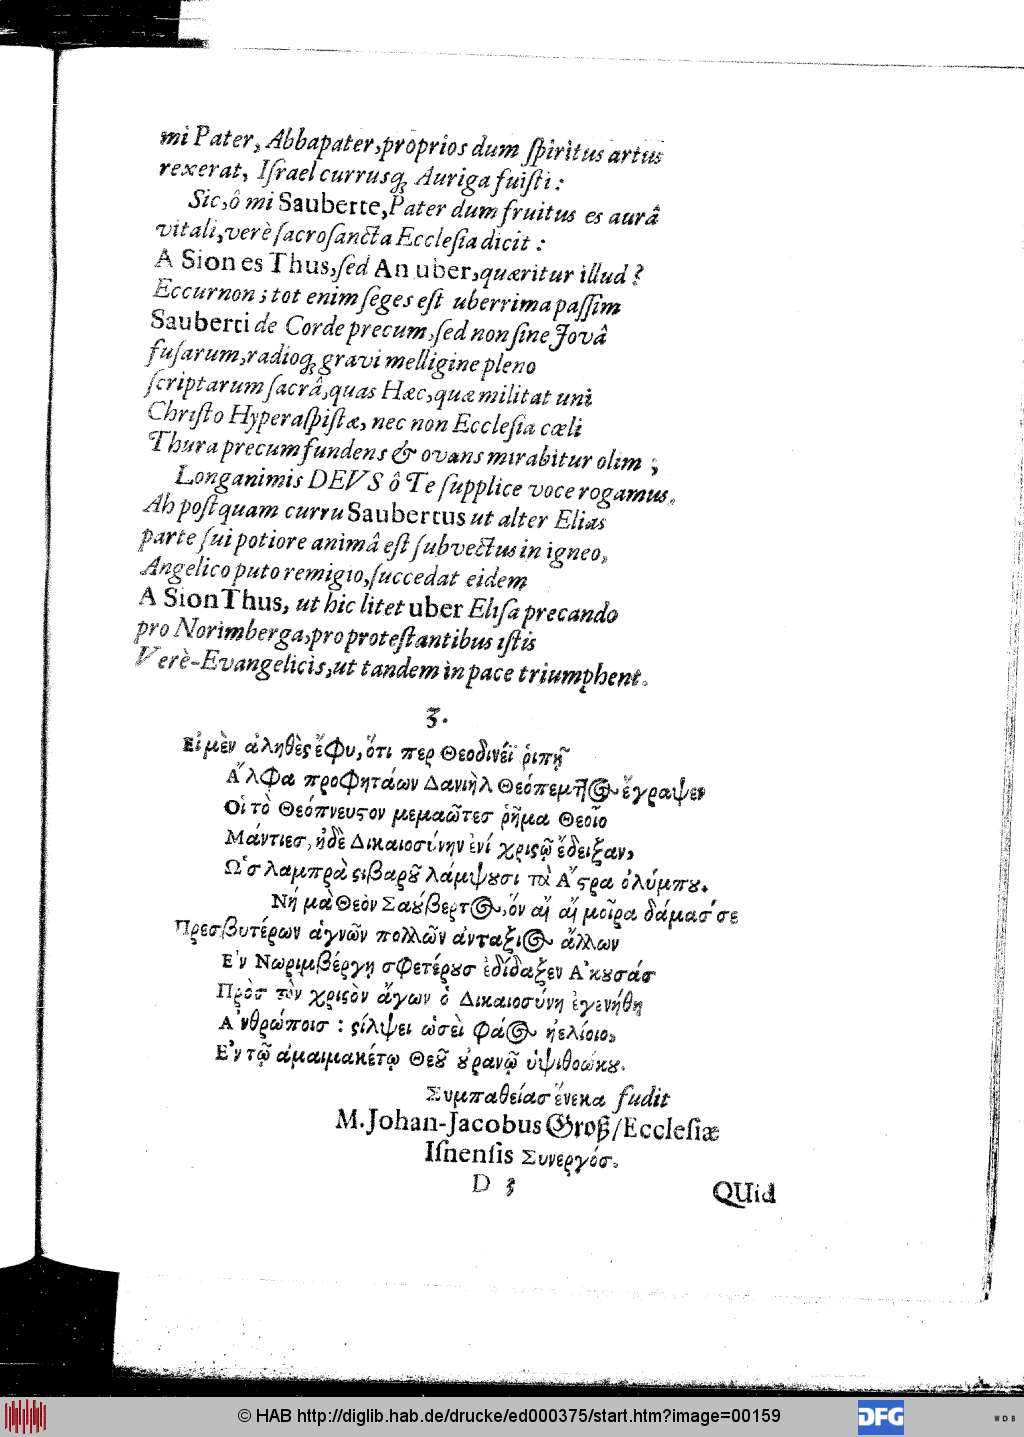 mi Pater, Abbapater, proprios dum ſpiritus artus
rexerat, Iſrael currusq́ꝫ Auriga fuiſti:
Sic, ô mi Sauberte, Pater dum fruitus es aurâ
vitali, verè ſacroſancta Eccleſia dicit:
A Sion es Thus, ſed An uber, quæritur illud?
Eccur non; tot enim ſeges eſt uberrima paſſim
Sauberti de Corde precum, ſed non ſine Jovâ
fuſarum, radioq́ꝫ gravi melligine pleno
ſcriptarum ſacrâ, quas Hæc, quæ militat uni
Chriſto Hyperaſpiſtæ, nec non Eccleſia cæli
Thura precum fundens & ovans mirabitur olim;
Longanimis DEVS ô Te ſupplice voce rogamus,
Ah poſtquam curru Saubertus ut alter Elias
parte ſui potiore animâ eſt ſubvectus in igneo,
Angelico puto remigio, ſuccedat eidem
A Sion Thus, ut hic litet uber Eliſa precando
pro Norimberga, pro proteſtantibus iſtis
Verè-Evangelicis, ut tandem in pace triumphent.
3.
Εἰ μὲν ἀληθὲς ἔφυ, ὅτι περ Θεοδινέϊ ῥιπῇ
Ἄλφα προφητάων Δανιὴλ Θεόπεμπτος ἔγραψεν
Οἱ τὸ Θεόπνευςον μεμαῶτεσ ῥῆμα Θεοῖο
Μάντιεσ, ἠδὲ Δικαιοσύνην ἐνί χριςῷ ἔδειξαν,
Ὡσ λαμπρὰ ςιβαροῦ λάμψουσι τὰ Ἄςρα ὀλύμπου.
Νή μὰ Θεὸν Σαύβερτος, ὅν αἴ αἴ μοῖρα δάμασ'σε
Πρεσβυτέρων ἁγνῶν πολλῶν ἀντάξιος ἄλλων
Ἐν Νωριμβέργῃ σφετέρουσ ἐδίδαξεν Ἀκουσάσ
Πρὸσ τὸν χριςὸν ἄγων ὁ Δικαιοσύνη ἐγενήθη
Ἀνθρώποισ: ςίλψει ὡσεὶ φάος ἠελίοιο,
Ἐν τῷ ἀμαιμακέτῳ Θεοῦ οὐρανῷ ὑψιθοώκου.
Συμπαθείασ ἕνεκα fudit
M. Johan-Jacobus Groß/Eccleſiæ
Iſnenſis Συνεργόσ.
D 3
QUid
© HAB http://diglib.hab.de/drucke/ed000375/start.htm?image=00159
DFG
WDB